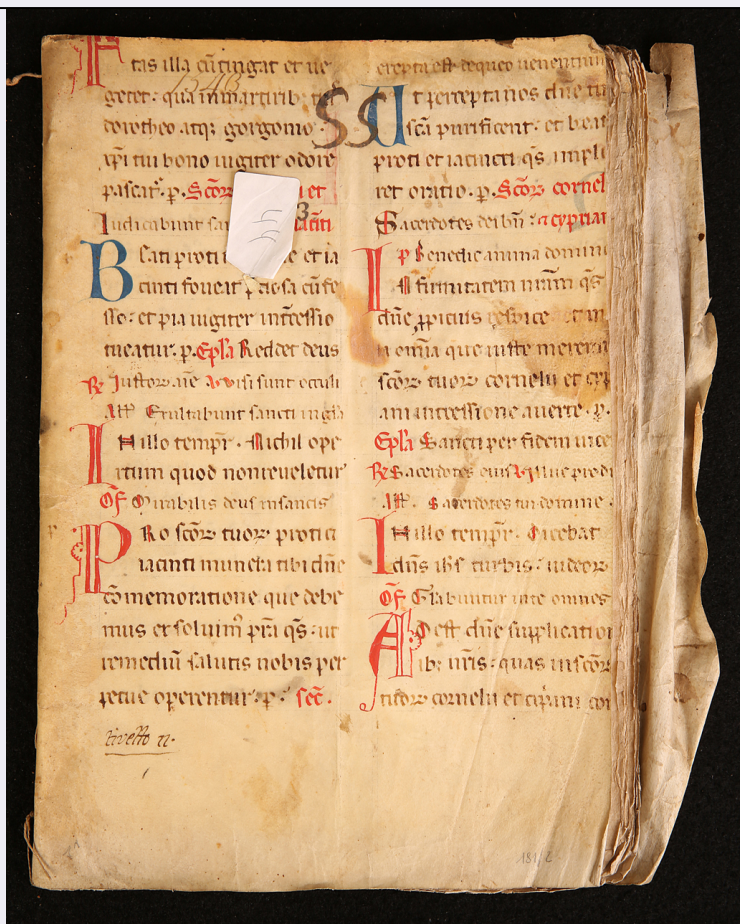 tas illa cūtingat et ve
geter: qua inmartirib; t
dorotheo atq; gorgonio
xp̄i tui bono iugiter odore
pascat̄. p. Scōꝝ et
Iudicabunt sa iacīti
Beati proti e et ia
cinti foveat p̄ciosa cū fe
ssio: et pia iugiter int̄cessio
tueatur. p. Ep̄la Reddet deus
℟ Iustoꝝ aīe ℣ visi sunt oculi
All̄ Exultabunt sancti in gl̄a
In illo tempr̄. Nichil ope
rtum quod non reveletur
Of̄ Mirabilis deus in sanctis
Pro scōꝝ tuoꝝ proti et
iacinti munera tibi dn̄e
cōmemoratione que debe
mus exsoluim⁹ p̄ra qs̄: ut
remediū salutis nobis per
petue operentur. p. sec̄.
tivetto n.
SS
erepta est de quo
Ut percepta nos dn̄e tu
scā purificent: et beat
proti et iacincti qs̄ impli
ret oratio. p. Scōꝝ cornel
Sacerdotes dei bn̄: et cyprian
Ip̄ Benedic anima domin
Infirmitatem nr̄am qs̄
dn̄e ꝓpicius respice et m
la omīa que iuste merem
scōꝝ tuoꝝ cornelii et cyp
ani intcessione averte. p.
Ep̄la Sancti per fidem vice
℟ Sacerdotes eius ℣ Illuc prod
All̄. Sacerdotes tui domine.
In illo tempr̄. Dicebat
dn̄s ih̄s turbis: iudeoꝝ
Of̄ Gl̄abuntur in te omnes
Adest dn̄e supplicatio
ib; nr̄is: quas in scōꝝ
tuoꝝ cornelii et cip̄ani co
181/2